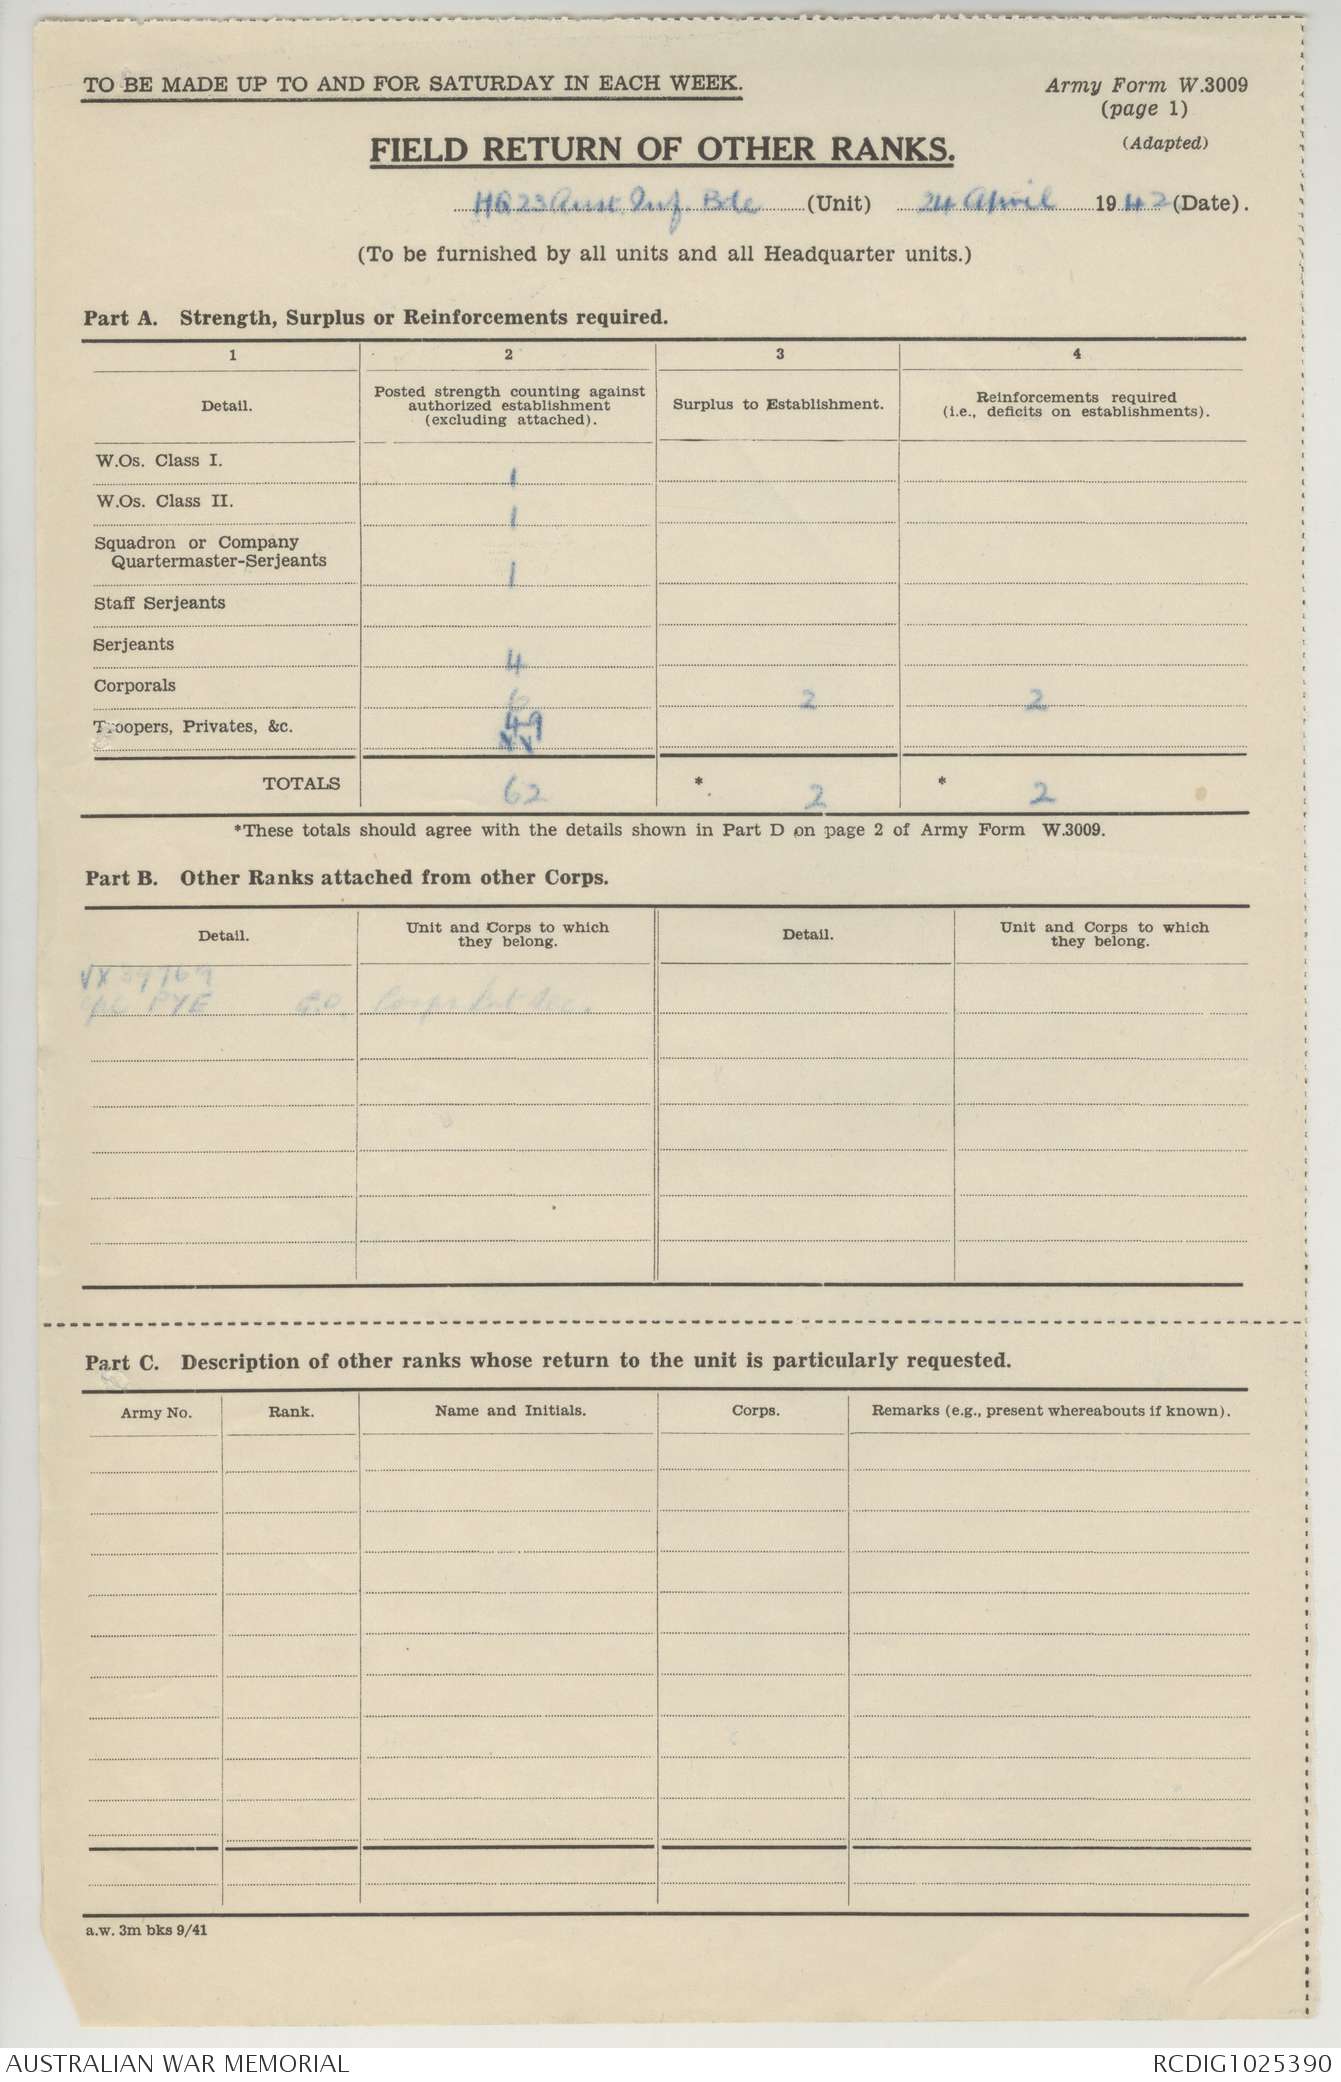 TO BE MADE UP TO AND FOR SATURDAY IN EACH WEEK.
Army Form W.3009
(page 1)
(Adapted)
FIELD RETURN OF OTHER RANKS.
HQ 23 Aust. Inf. Bde (Unit) 24 April 1942 (Date).
(To be furnished by all units and all Headquarter units.)
Part A. Strength, Surplus or Reinforcements required.
1 2 3 4
Detail.
Posted strength counting against
authorized establishment
(excluding attached).
Surplus to Establishment.
Reinforcements required
(i.e., deficits on establishments).
W.Os. Class I. 1
W.Os. Class II. 1
Squadron or Company
Quartermaster-Serjeants 1
Staff Serjeants
Serjeants 4
Corporals 6 2 2
Troopers, Privates, &c. 49
TOTALS 62 * 2 * 2
*These totals should agree with the details shown in Part D on page 2 of Army Form W.3009.
Part B. Other Ranks attached from other Corps.
Detail.
Unit and Corps to which
they belong.
Detail.
Unit and Corps to which
they belong.
Cpl PYE G.O. Corps Int Sec.
Part C. Description of other ranks whose return to the unit is particularly requested.
Army No. Rank. Name and Initials. Corps. Remarks (e.g., present whereabouts if known).
a.w. 3m bks 9/41
AUSTRALIAN WAR MEMORIAL
RCDIG1025390